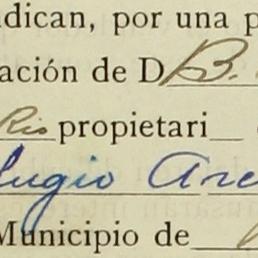 ndican, por una p
ación de D B.
Rio propietari
lugio Are
Municipio de